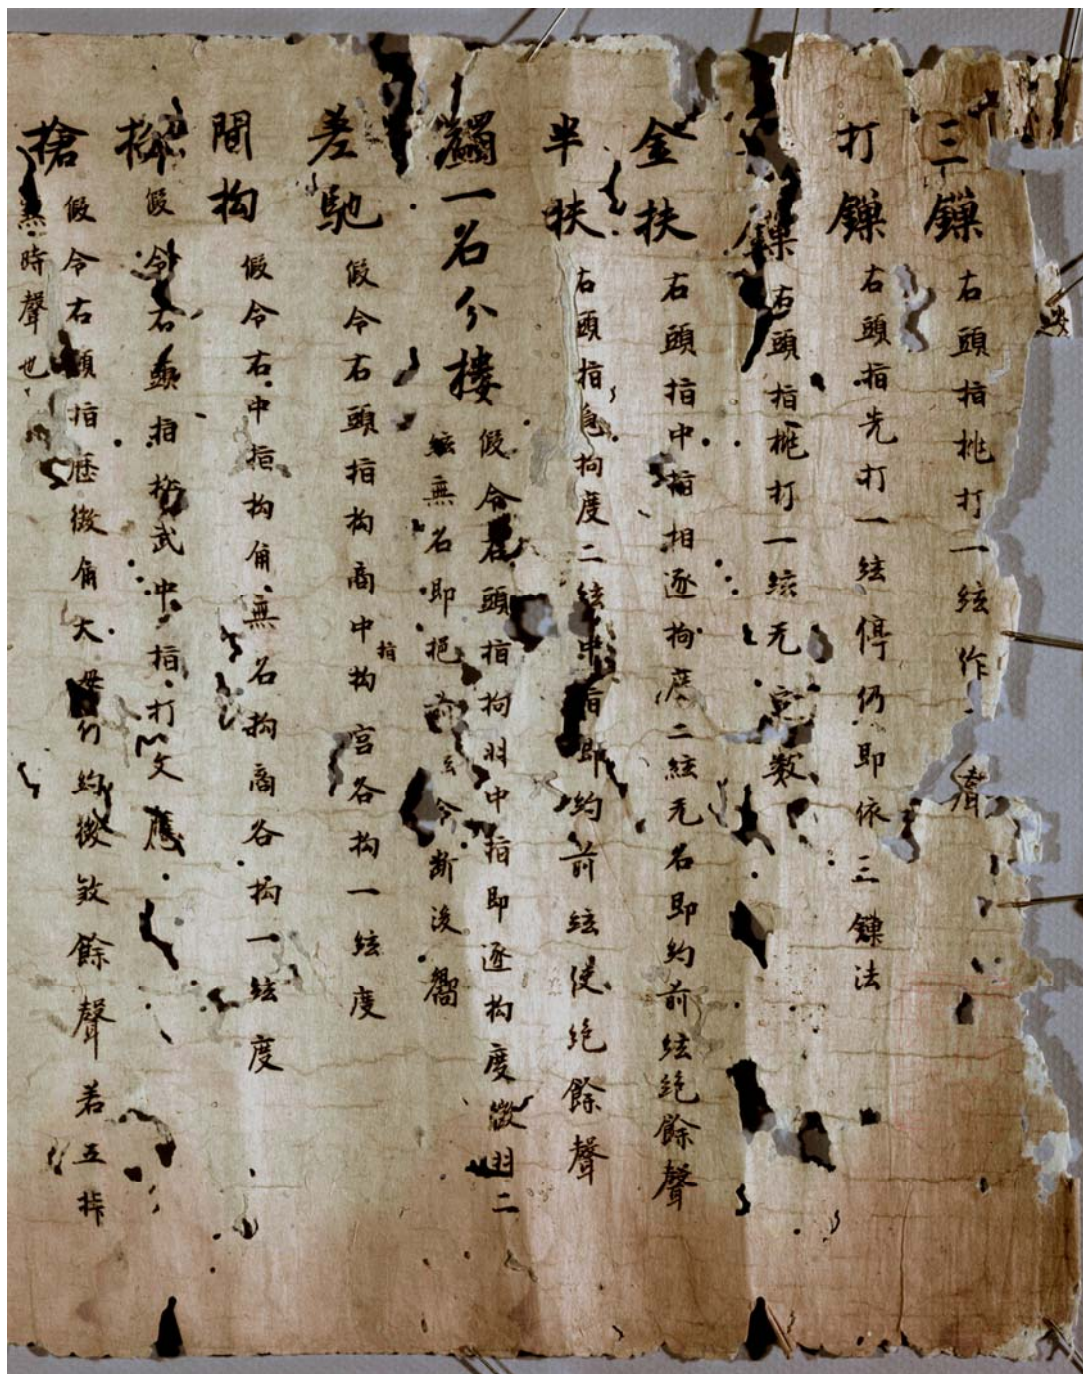 三鏁 右頭指挑打一絃作
打鏁 右頭指先打一絃停仍即依三鏁法
鏁 右頭指挑打一絃无定數
金扶 右頭指中指相逐拘度二絃无名即約前絃絶餘聲
半扶 右頭指急拘度二絃中指即約前絃使絶餘聲
蠲一名分摟 假令右頭指拘羽中指即逐拘度徵羽二
絃無名即挹前絃令断後響
差馳 假令右頭指拘商中指拘宮各拘一絃度
間拘 假令右中指拘角無名拘商各拘一絃度
假令右頭指武中指打文應
搶 假令右頭指歷徵角大母仍約徵敛餘聲若五
無時聲也